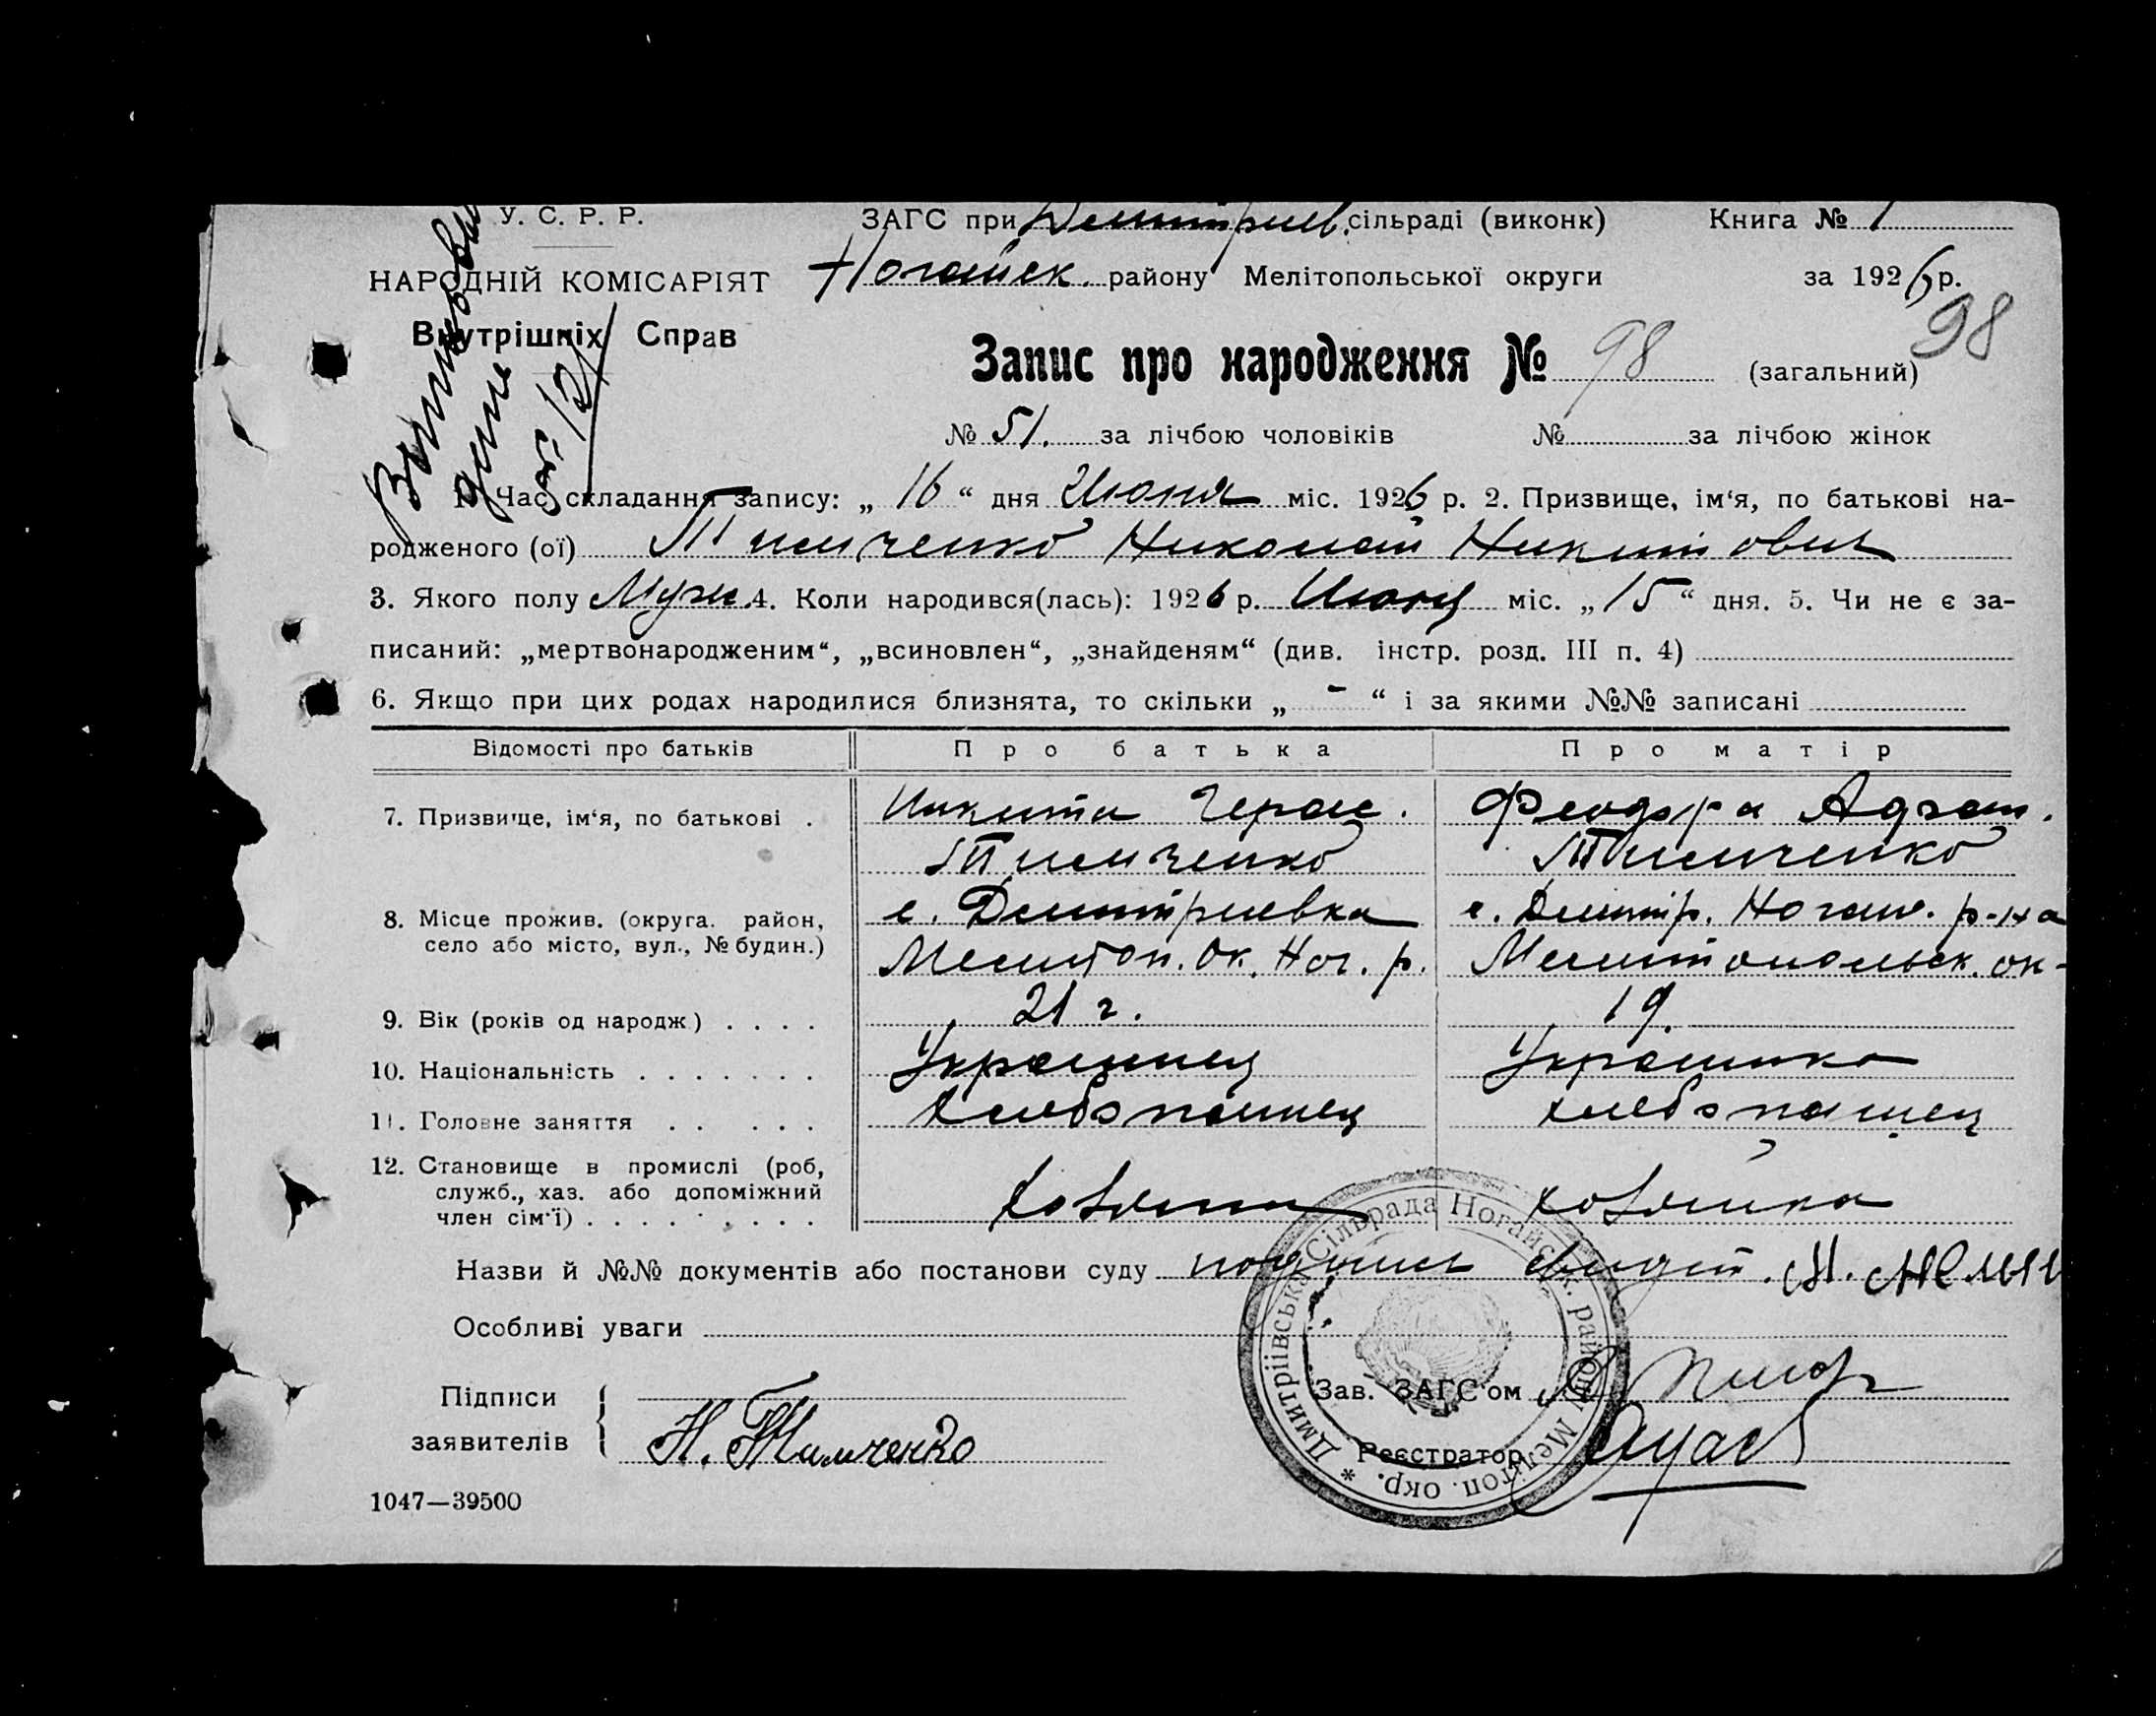 У. С. Р. Р.
НАРОДНІЙ КОМІСАРІЯТ
Внутрішніх Справ
ЗАГС при Дмитриев. сільраді (виконк) Книга № 1
Ногайск. району Мелітопольської округи за 1926 р.
98
Запис про народження № 98 (загальний)
№ 51. за лічбою чоловіків № за лічбою жінок
1. Час складання запису: „ 16 “ дня Июня міс. 1926 р. 2. Призвище, ім‘я, по батькові на-
родженого (ої) Тимченко Николай Никитович
3. Якого полу Муж. 4. Коли народився(лась): 1926 р. Июня міс. „ 15 “ дня. 5. Чи не є за-
писаний: „мертвонародженим“, „всиновлен“, „знайденям“ (див. інстр. розд. III п. 4)
6. Якщо при цих родах народилися близнята, то скільки „ - “ і за якими №№ записані
Відомості про батьків Про батька Про матір
7. Призвище, ім‘я, по батькові . Никита Герас. Феодора
Тимченко Тимченко
8. Місце прожив. (округа. район, с. Дмитриевка с. Дмитр. Ногай. р-на
село або місто, вул., № будин.) Мелитоп. ок. Ног. р. Мелитопольск. ок-
9. Вік (років од народж) . . . . 21 г. 19.
10. Національність . . . . . . . Украинец Украинка
11. Головне заняття . . . . . Хлебопашец хлебопашец
12. Становище в промислі (роб,
служб., хаз. або допоміжний
член сім‘ї) . . . . . . . . . Хозяин хозяйка
Назви й №№ документів або постанови суду
Особливі уваги
Підписи
заявителів Н. Тимченко
Зав. ЗАГС‘ом
Реєстратор
Дмитріївська Сільрада Ногайськ. району Мелітоп. окр. *
1047—39500